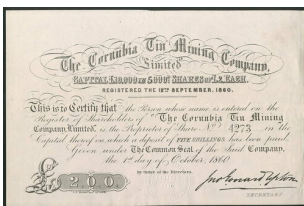 The Cornubia Tin Mining Company,
Limited
CAPITAL £10,000 IN 5000 SHARES OF £2 EACH.
REGISTERED THE 12TH SEPTEMBER, 1860.
This is to Certify that the Person whose name is entered on the
Register of Shareholders of "The Cornubia Tin Mining
Company, Limited," is the Proprietor of Share No. 4273 in the
Capital thereof on which a deposit of FIVE SHILLINGS has been paid
Given under The Common Seal of the Said Company,
the 1st day of October, 1860
By Order of the Directors,
£2.0.0.
SECRETARY